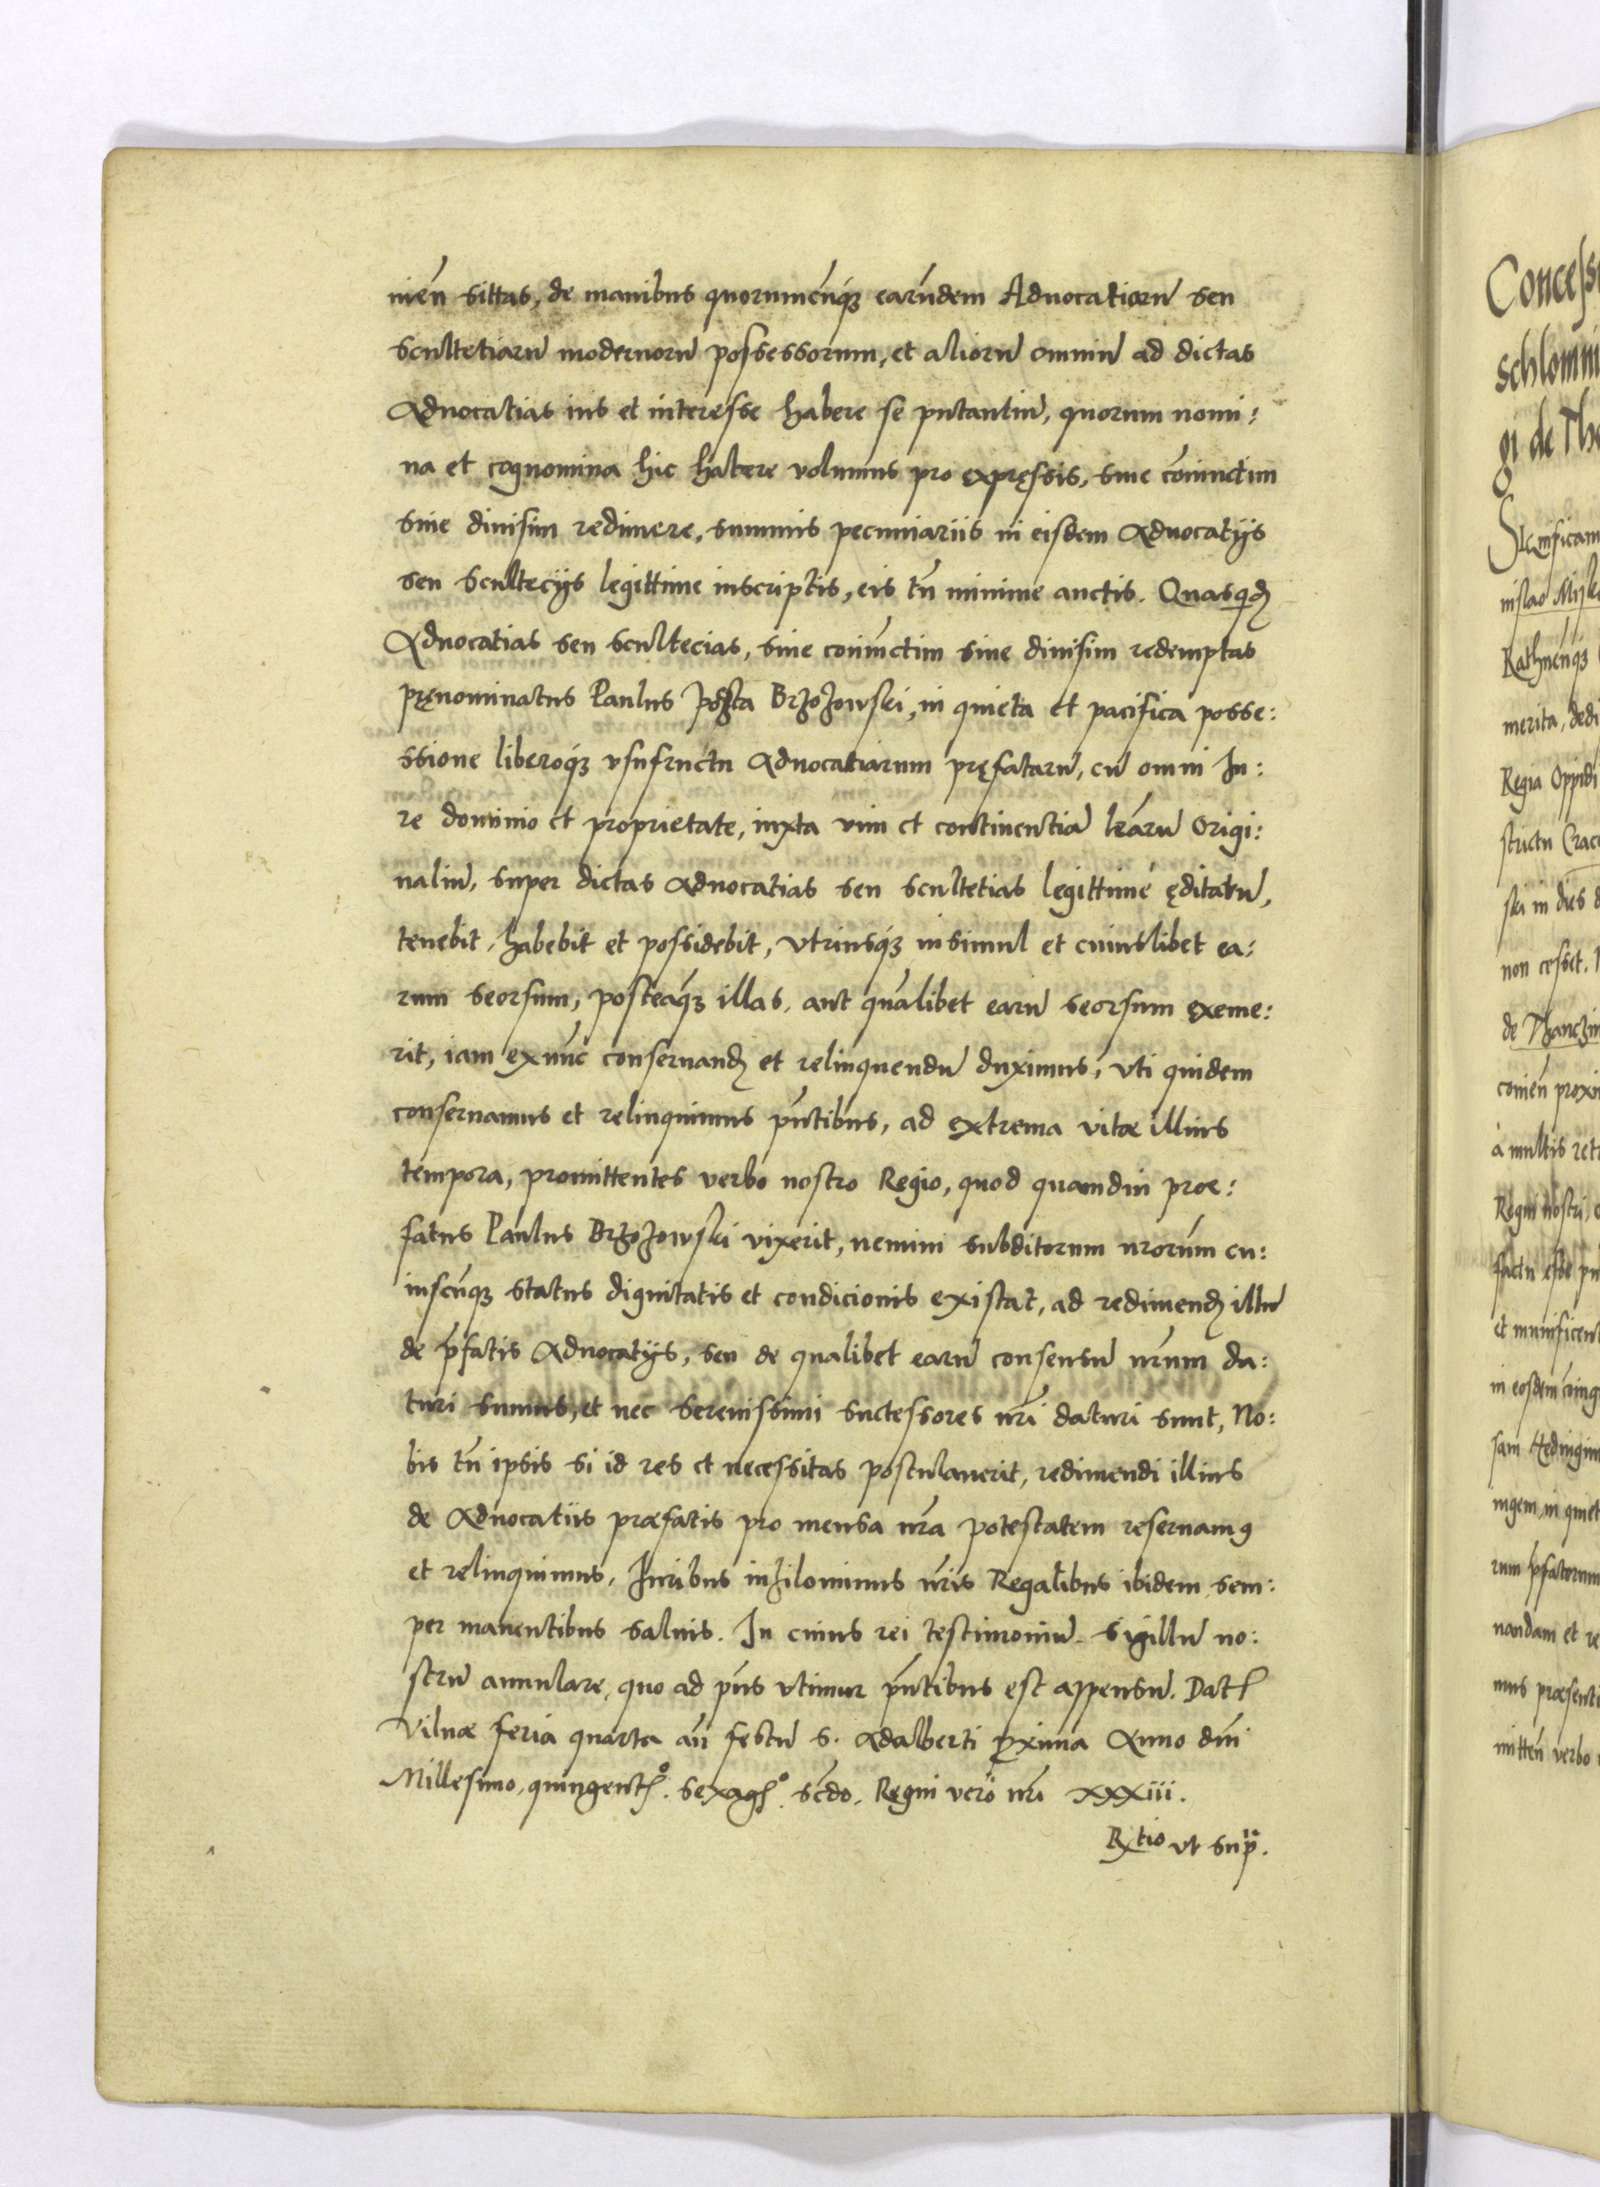 nień sittas, de manibus quorumcunq́; earundem Advocatiarū seu
scultetiarū modernorū possessorum, et aliorū omniū ad dictas
Advocatias ius et interesse habere se putantiū, quorum nomi:
na et cognomina hic habere volumus pro expręssis, siue coniunctim
siue diuisim redimere, summis pecuniariis in eisdem Aduocatijs
seu scultecijs legittime inscriptis, eis tn̄ minime auctis. Quasqd
Aduocatias seu scultecias, siue coniunctim siue diuisim redemptas
pręnominatus Paulus Brzozowski, in quieta et pacifica posse:
ssione liberoq́; vsufructu Aduocatiarum pręfatarū, cū omni Iu:
re dominio et proprietate, iuxta vim et continentiā lr̄arū Origi:
naliū, super dictas Aduocatias seu scultetias legittimè ęditarū,
tenebit, habebit et possidebit, vtriusq́; insimul et cuiuslibet ea:
rum seorsum, posteaq́; illas, aut qualibet earū seorsum exeme:
rit, iam exnūc conseruand et relinquendū duximus, vti quidem
conseruamus et relinquimus pn̄tibus, ad extrema vitæ illius
tempora, promittentes verbo nostro Regio, quod quamdiu præ:
fatus Paulus Brzozowski vixerit, nemini subditorum nrorum cu:
iuscunq; status dignitatis et condicionis existat, ad redimend illū
de pfatis Aduocatijs, seu de qualibet earū consensū nrum da:
turi sumus, et nec serenissimi suctessores nri daturi sunt, No:
bis tn̄ ipsis si id res et necessitas postulauerit, redimendi illius
de Aduocatiis præfatis pro mensa nra potestatem reseruamꝰ
et relinquimus, Iuribus inhilominus nris Regalibus ibidem sem:
per manentibus saluis. In cuius rei testimoniū sigillū no:
strū annulare, quo ad pn̄s vtimur pn̄tibus est appensū. Dat
Vilnæ feria quarta an̄ festū S. Adalberti pxima Anno dn̄i
Millesimo, quingentᵒ. sexagᵒ. scd̄o. Regni verò nri XXXiii.
Rtio vt supª.
Concess
schlomni
gi de The
Significam
nislao Mijsk
Kathnenq́;
merita, dedi
Regia Oppidi
strictu Crac
ski in dies
non cesset.
de Thanczin
conien proxi
à multis ret
Regni nostri,
factū esse
et munificent
in eosdem
ingem, in quiet
rum pfatorum
nandam et re
mus præsenti
mitten̄ verbo